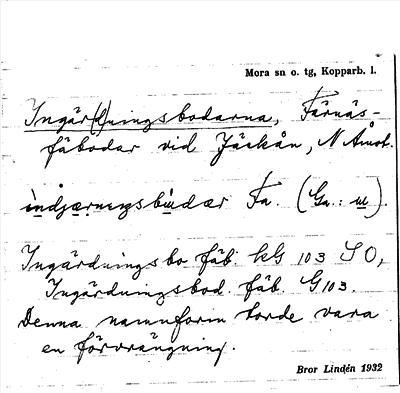 Mora sn o. tg, Kopparb. l.
Ingär(d)ningsbodarna, Färnäs-
fäbodar vid Jäckån, N Åmot.
indjærnɩngsbu̇dær Fa. (Ga.: u).
Ingärdningsbo fäb. kG 103 SO,
Ingärdningsbod. fäb. G 103.
Denna namnform torde vara
en förvrängning.
Bror Lindén 1932